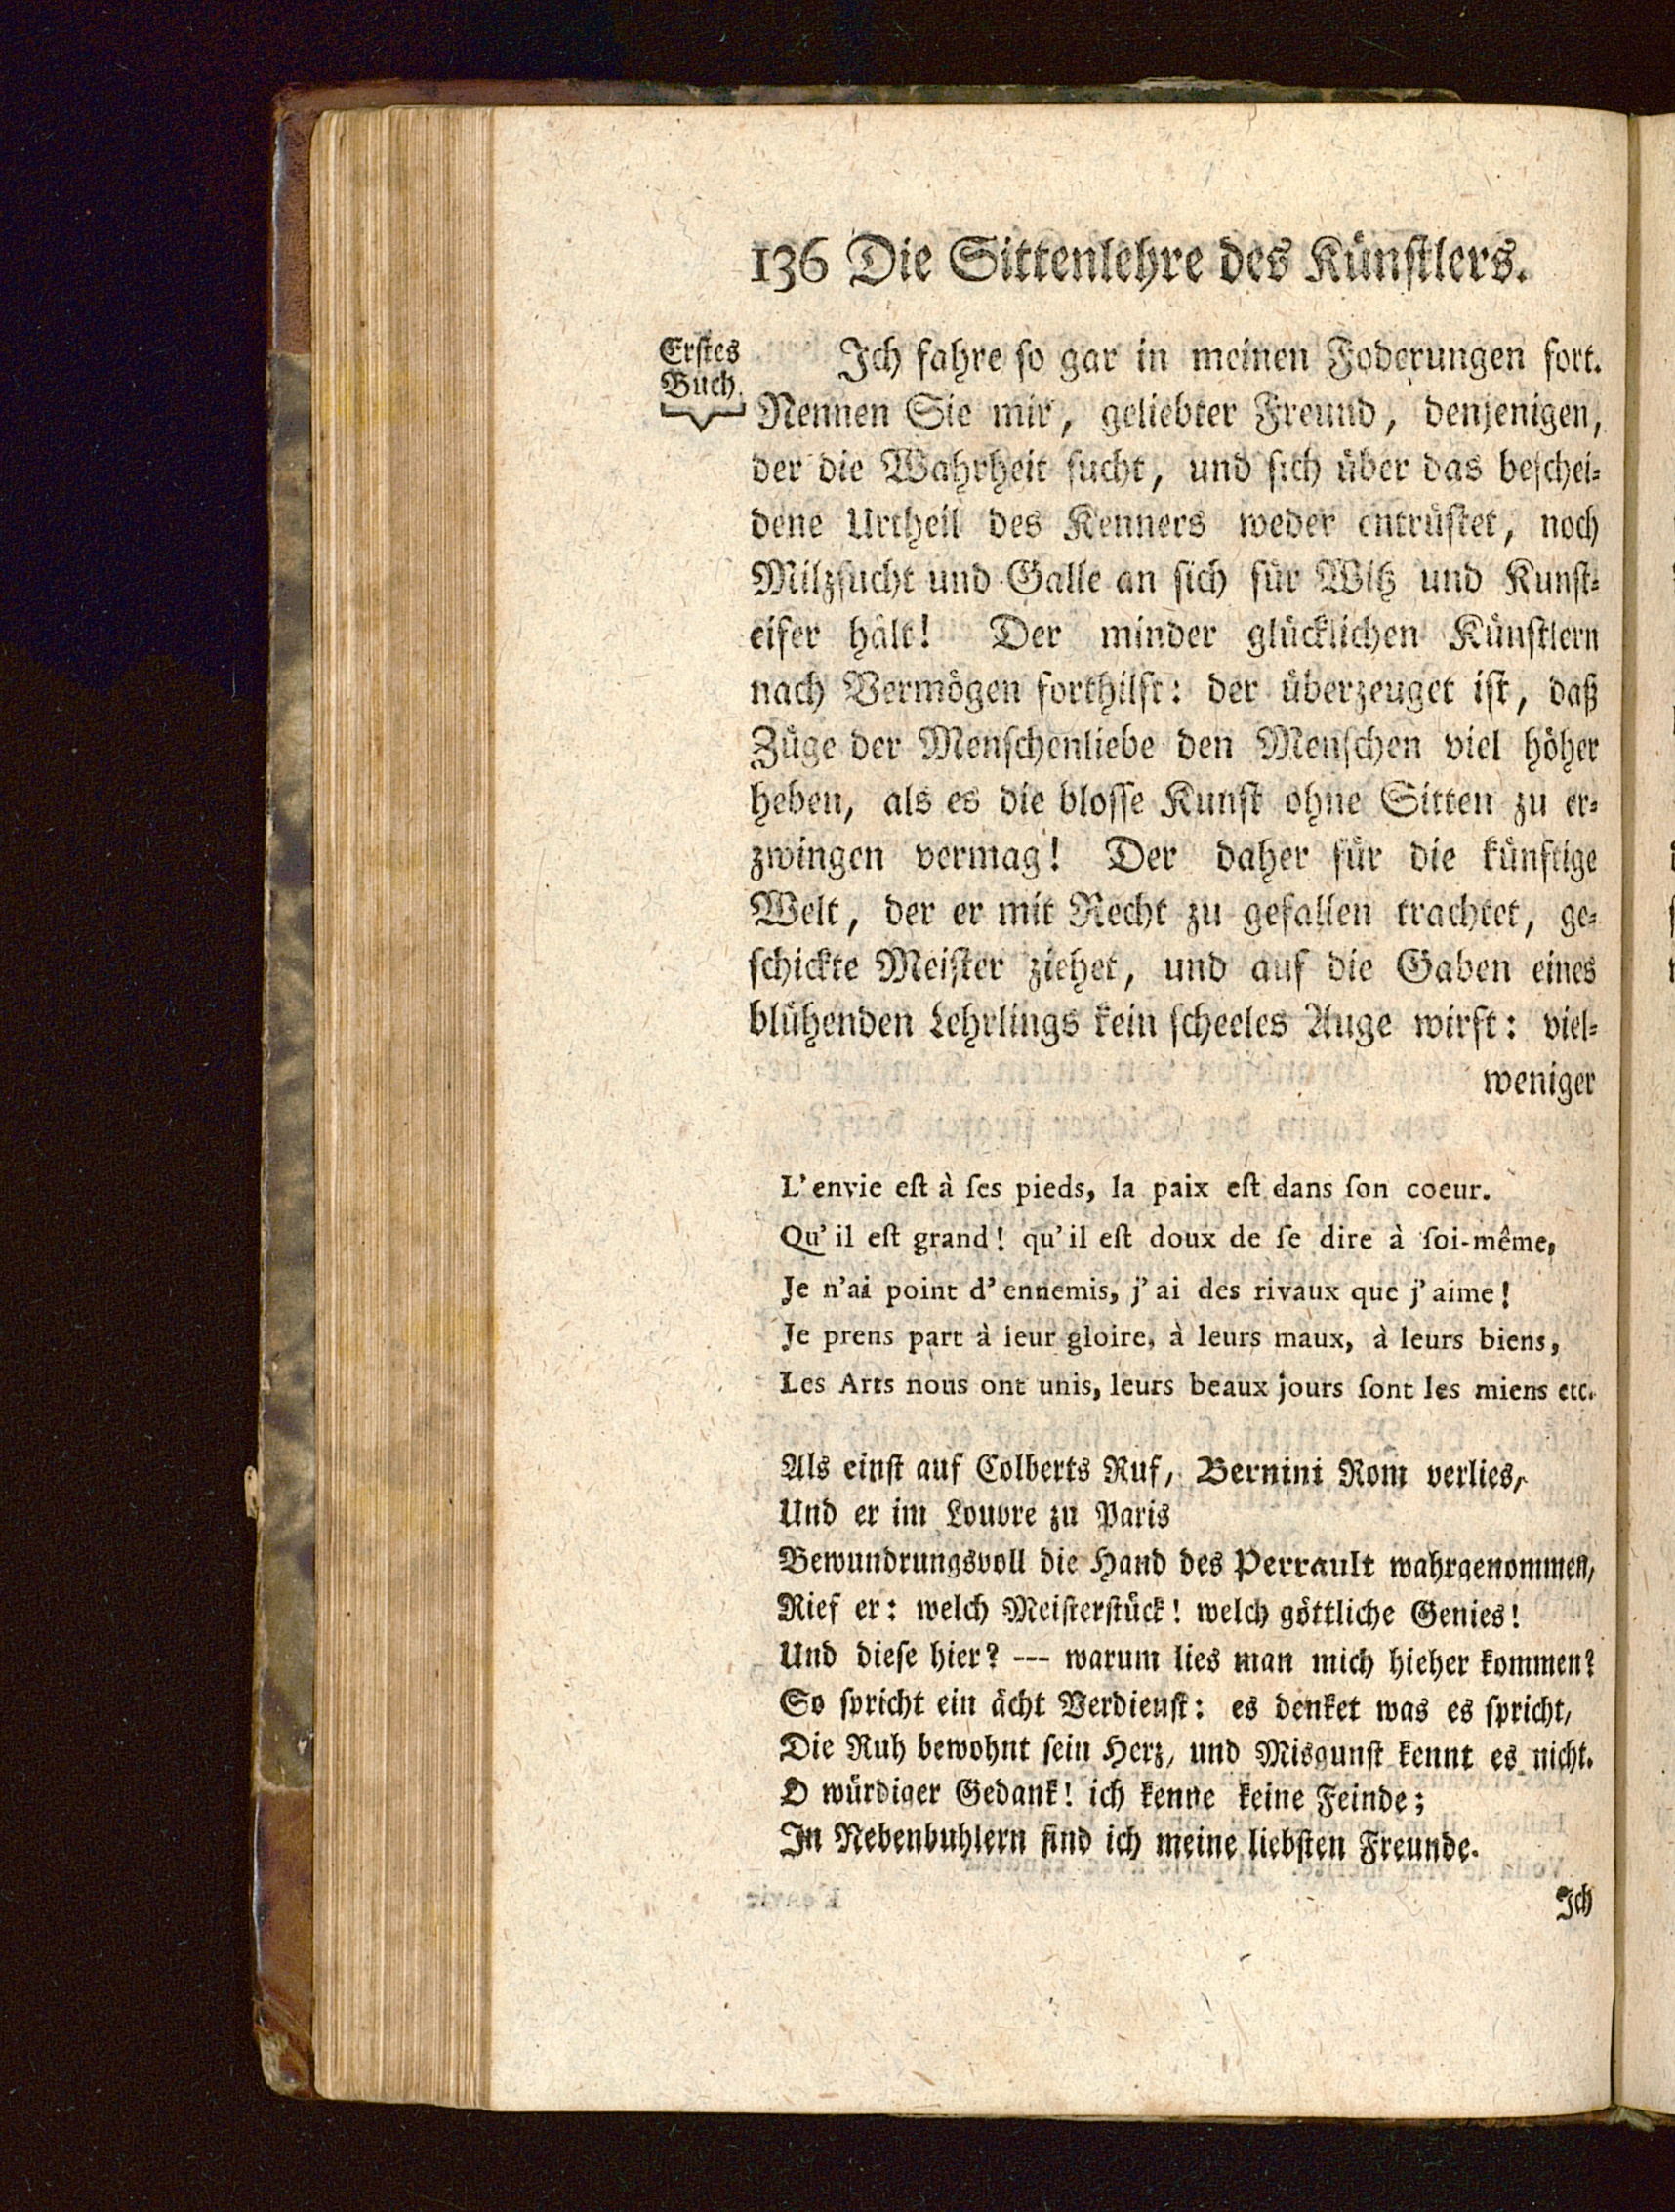 136 Die Sittenlehre des Künstlers.
Erstes
Buch.
Ich fahre so gar in meinen Foderungen fort.
Nennen Sie mir, geliebter Freund, denjenigen,
der die Wahrheit sucht, und sich über das beschei-
dene Urtheil des Kenners weder entrüstet, noch
Milzsucht und Galle an sich für Witz und Kunst-
eifer hält! Der minder glücklichen Künstlern
nach Vermögen forthilft: der überzeuget ist, daß
Züge der Menschenliebe den Menschen viel höher
heben, als es die blosse Kunst ohne Sitten zu er-
zwingen vermag! Der daher für die künftige
Welt, der er mit Recht zu gefallen trachtet, ge-
schickte Meister ziehet, und auf die Gaben eines
blühenden Lehrlings kein scheeles Auge wirft: viel-
weniger
L'envie eſt à ſes pieds, la paix eſt dans ſon coeur.
Qu'il eſt grand! qu'il eſt doux de ſe dire à ſoi-même,
Je n'ai point d'ennemis, j'ai des rivaux que j'aime!
Je prens part à leur gloire, à leurs maux, à leurs biens,
Les Arts nous ont unis, leurs beaux jours ſont les miens etc.
Als einst auf Colberts Ruf, Bernini Rom verlies,
Und er im Louvre zu Paris
Bewundrungsvoll die Hand des Perrault wahrgenommen,
Rief er: welch Meisterstück! welch göttliche Genies!
Und diese hier? --- warum lies man mich hieher kommen?
So spricht ein ächt Verdienst: es denket was es spricht,
Die Ruh bewohnt sein Herz, und Misgunst kennt es nicht.
O würdiger Gedank! ich kenne keine Feinde;
In Nebenbuhlern find ich meine liebsten Freunde.
Ich